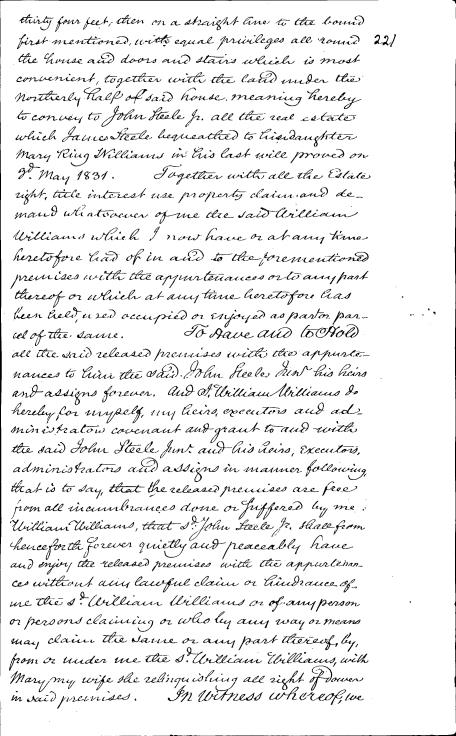 thirty four feet, then on a straight line to the bound
first mentioned, with equal privileges all round
221
the house and doors and stairs which is most
convenient, together with the land under the
Northerly half of said house, meaning hereby
to convey to John Steele Jr. all the real estate
which James Steele bequeathed to his daughter
Mary King Williams in his last will proved on
3d. May 1831. Together with all the Estate
right, title interest use property claim and de-
mand whatsoever of me the said William
Williams which I now have or at any time
heretofore had of in and to the forementioned
premises with the appurtenances or to any part
thereof or which at any time heretofore has
been held, used occupied or enjoyed as part or par-
cel of the same. To Have and to Hold
all the said released premises with the appurte-
nances to him the said John Steele Junr. his heirs
and assigns forever. And I, William Williams do
hereby for myself, my heirs, executors and ad-
ministrators covenant and grant to and with
the said John Steele Junr. and his heirs, executors,
administrators and assigns in manner following
that is to say, that the released premises are free
from all incumbrances done or suffered by me
William Williams, that sd. John Steele Jr. shall from
henceforth forever quietly and peaceably have
and enjoy the released premises with the appurtenan-
ces without any lawful claim or hindrance of
me the sd. William Williams or of any person
or persons claiming or who by any way or means
may claim the same or any part thereof, by,
from or under me the sd. William Williams, with
Mary my wife she relinquishing all right of Dower
in said premises. In Witness whereof, we